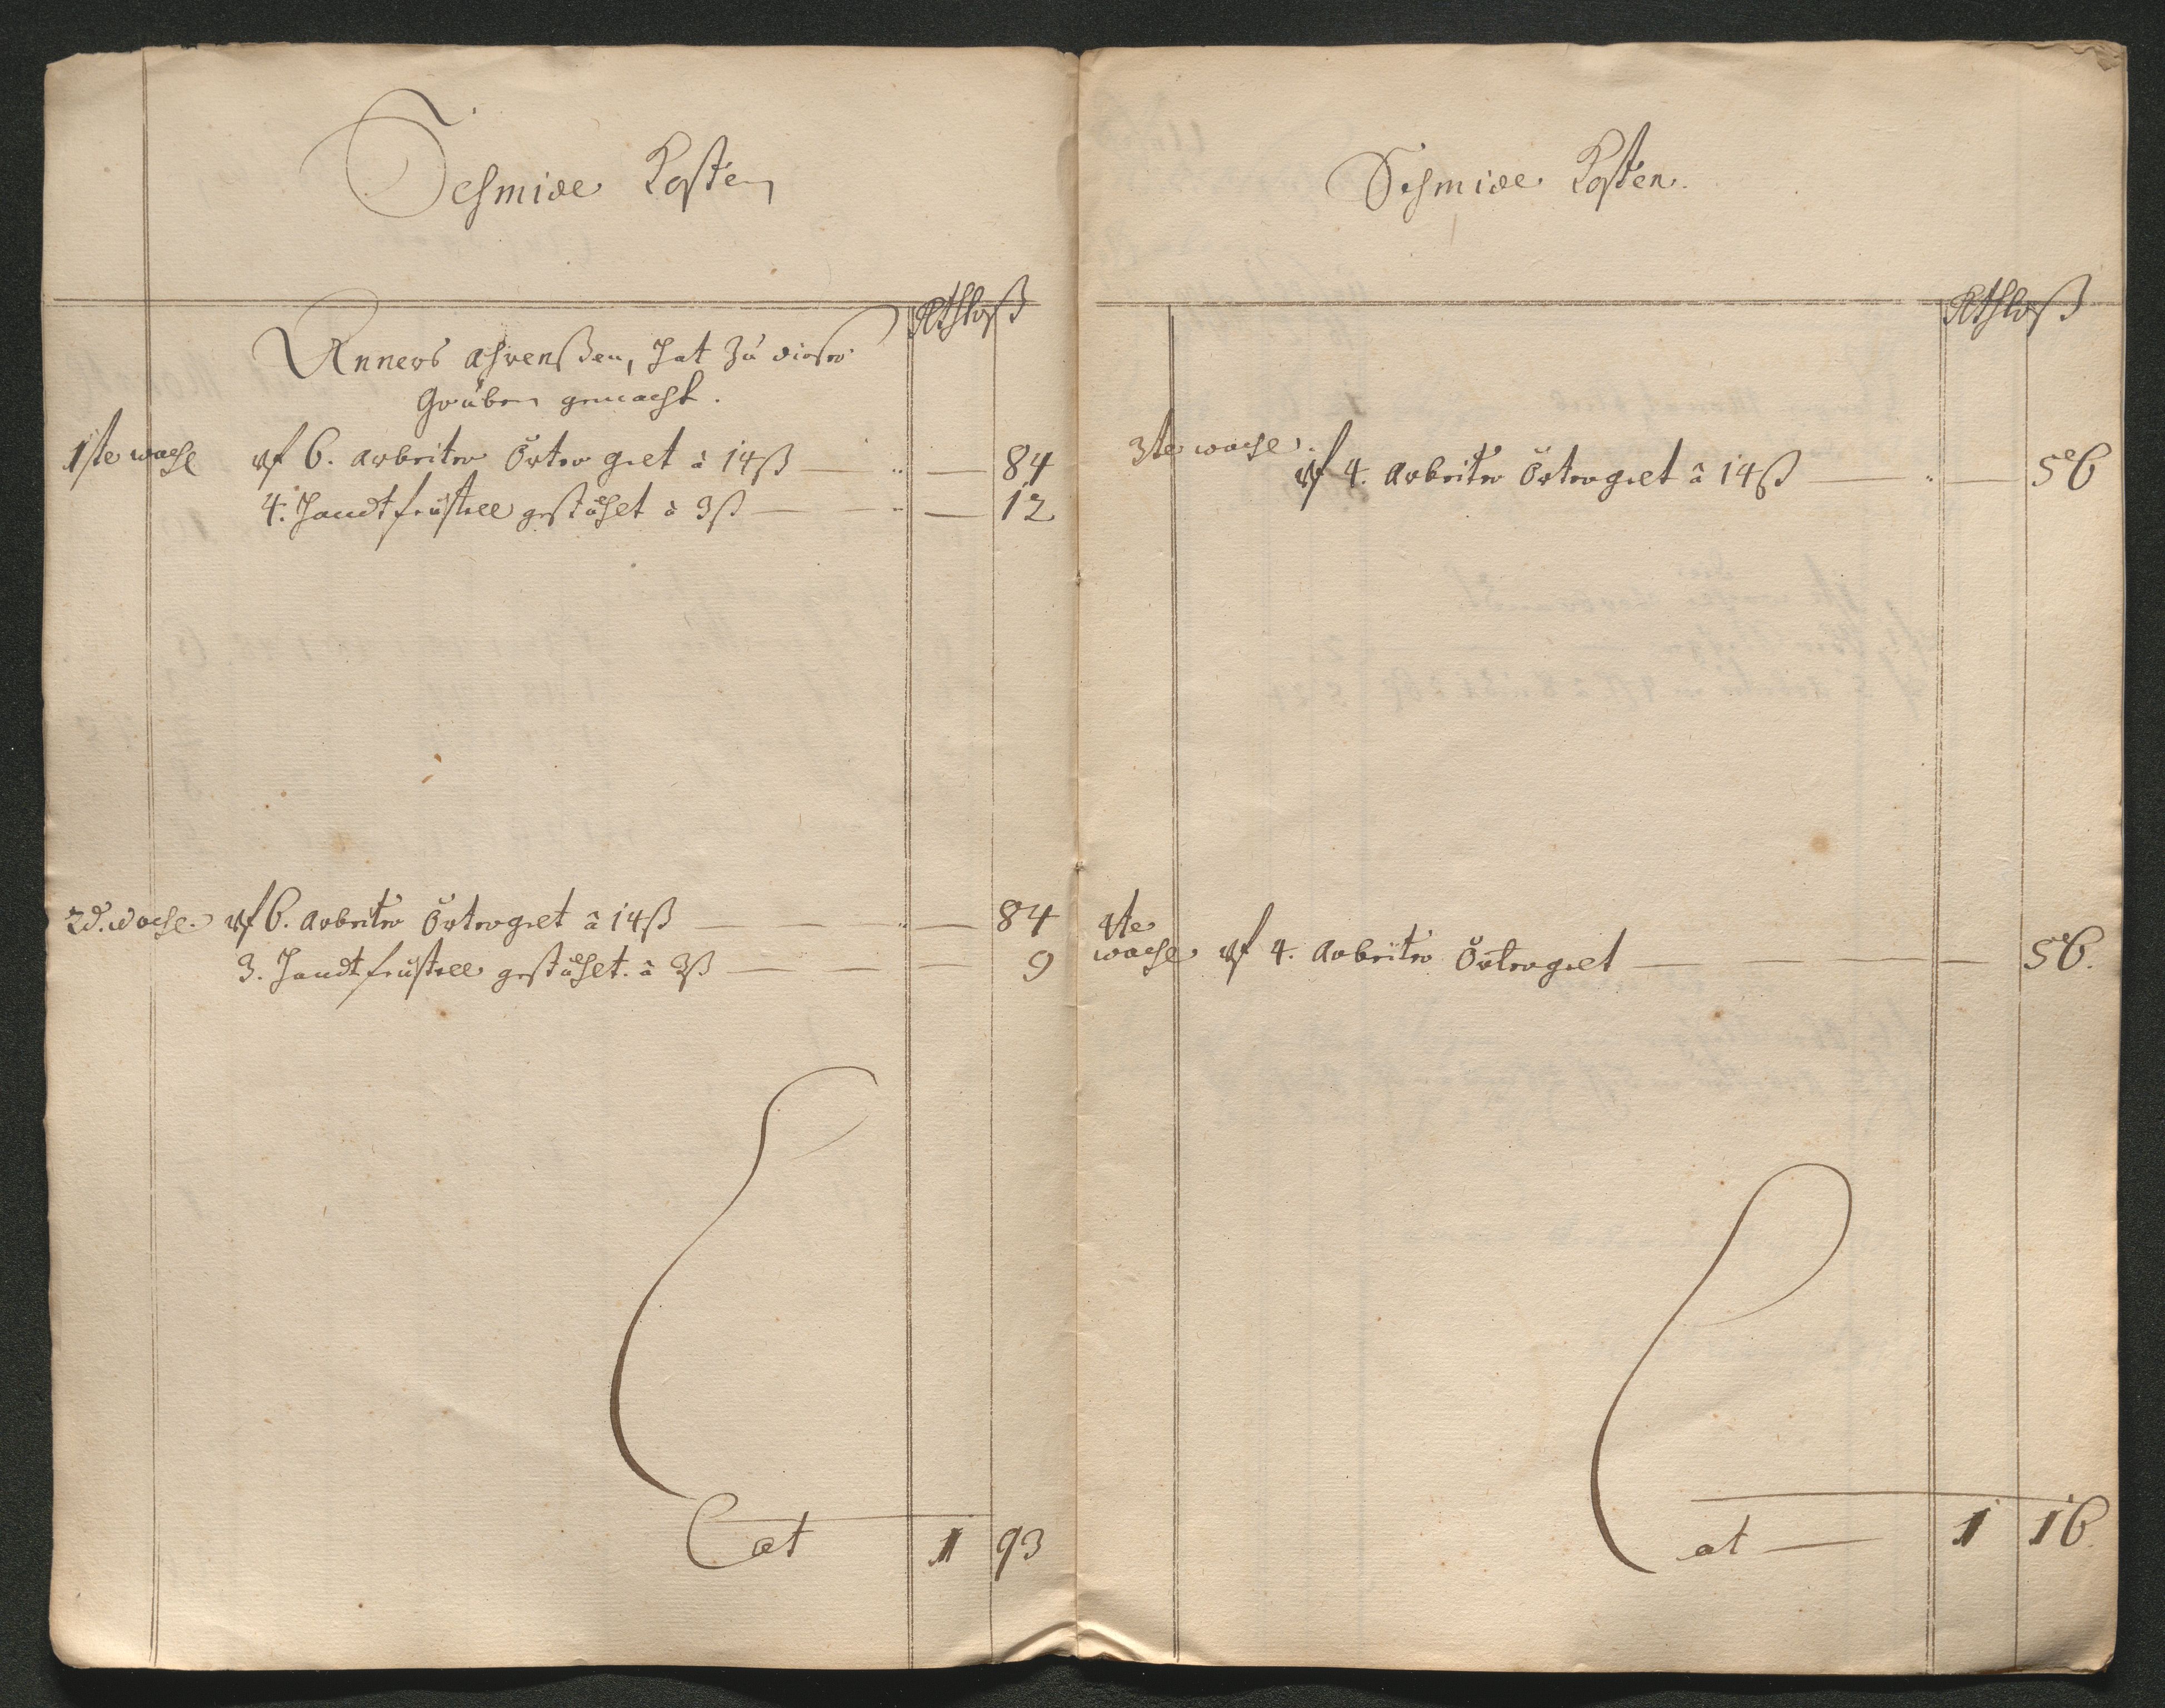 Schmide Kosten
Rthlr ß
Anners Ahrenßen, hat zu dieser
Gruben gemacht.
1ste woche uf 6. Arbeiter Örter gelt â 14ß — .. — 84
4. Handtfeustell gestählt â 3ß — — .. — 12
2d. woche. uf 6. Arbeiter Örtergelt â 14ß — — .. — 84
3. Handtfeustell gestählt. â 3ß — — — 9
Lat 1 93
Schmide Kosten.
Rthlr ß
3te woche.
uf 4. Arbeiter Örtergelt â 14ß — .. — 56
4te
woche uf 4. Arbeiter Örtergelt — — — — 56.
Lat — 1 16.